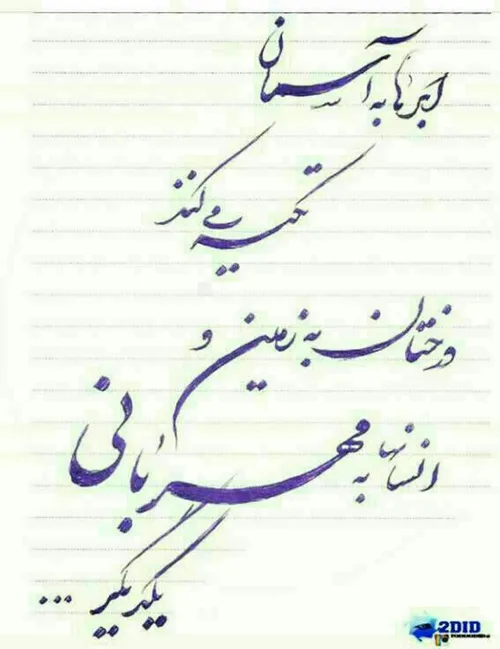 ابرها به آسمان
تکیه می کنند
درختان به زمین و
انسانها به مهربانی
یکدیگر ...
2DID